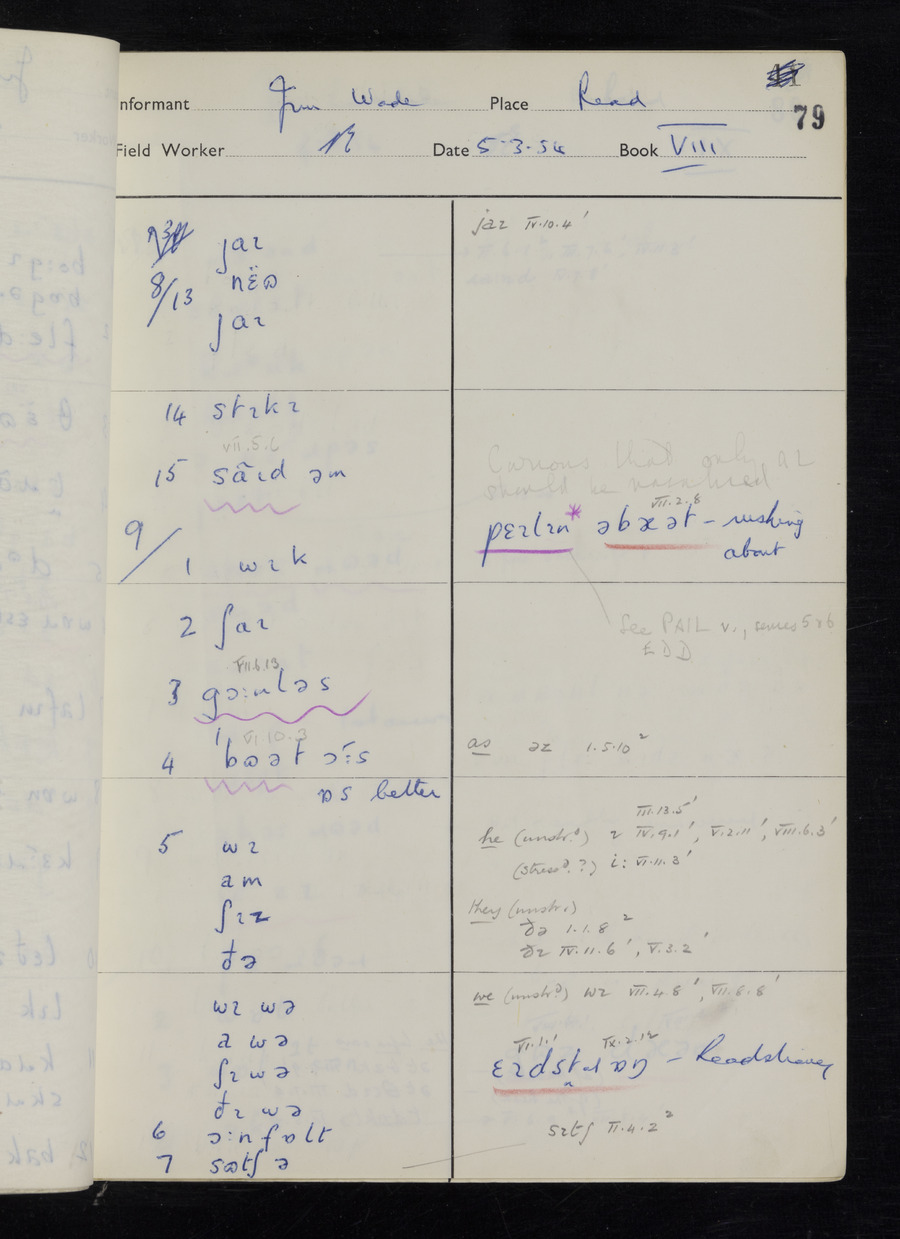 79
Informant Jim Wade Place Read
Field Worker Date 5.3.54 Book VIII
jaɪ
8/13 nëɷ
jaɪ
jaɪ IV.10.4'
14 stɪkɪ
VII.5.6
15 sãɪd əm
9/1 wɪk
Curious that only aɪ
should be
VII.2.8
pɛɪlɪn* əbæət – rushing
about
2 ʃaɪ
See PAIL v., senses 5 & 6
EDD
VII.6.13
3 gɔ:nləs
VI.10.3
4 bɷət ɔ:s
as əz 1.5.10²
ɒs better
III.13.5'
5 wɪ
he (unstr.d) ɪ IV.9.1', V.2.11', VIII.6.3'
am
(stress.d ?) i: VI.11.3'
ʃɪz
they (unstr.)
ðə 1.1.8²
ðə
ðɪ IV.11.6', V.3.2'
wɪ wə
we (unstr.d) wɪ VII.4.8', VII.8.8'
a wə
VI.1.1 IX.2.12
ʃɪ wə
– Headshievey
ðɪ wə
6 ɔ:nfɒlt
sɪtʃ II.4.2²
7 sɷtʃ ə